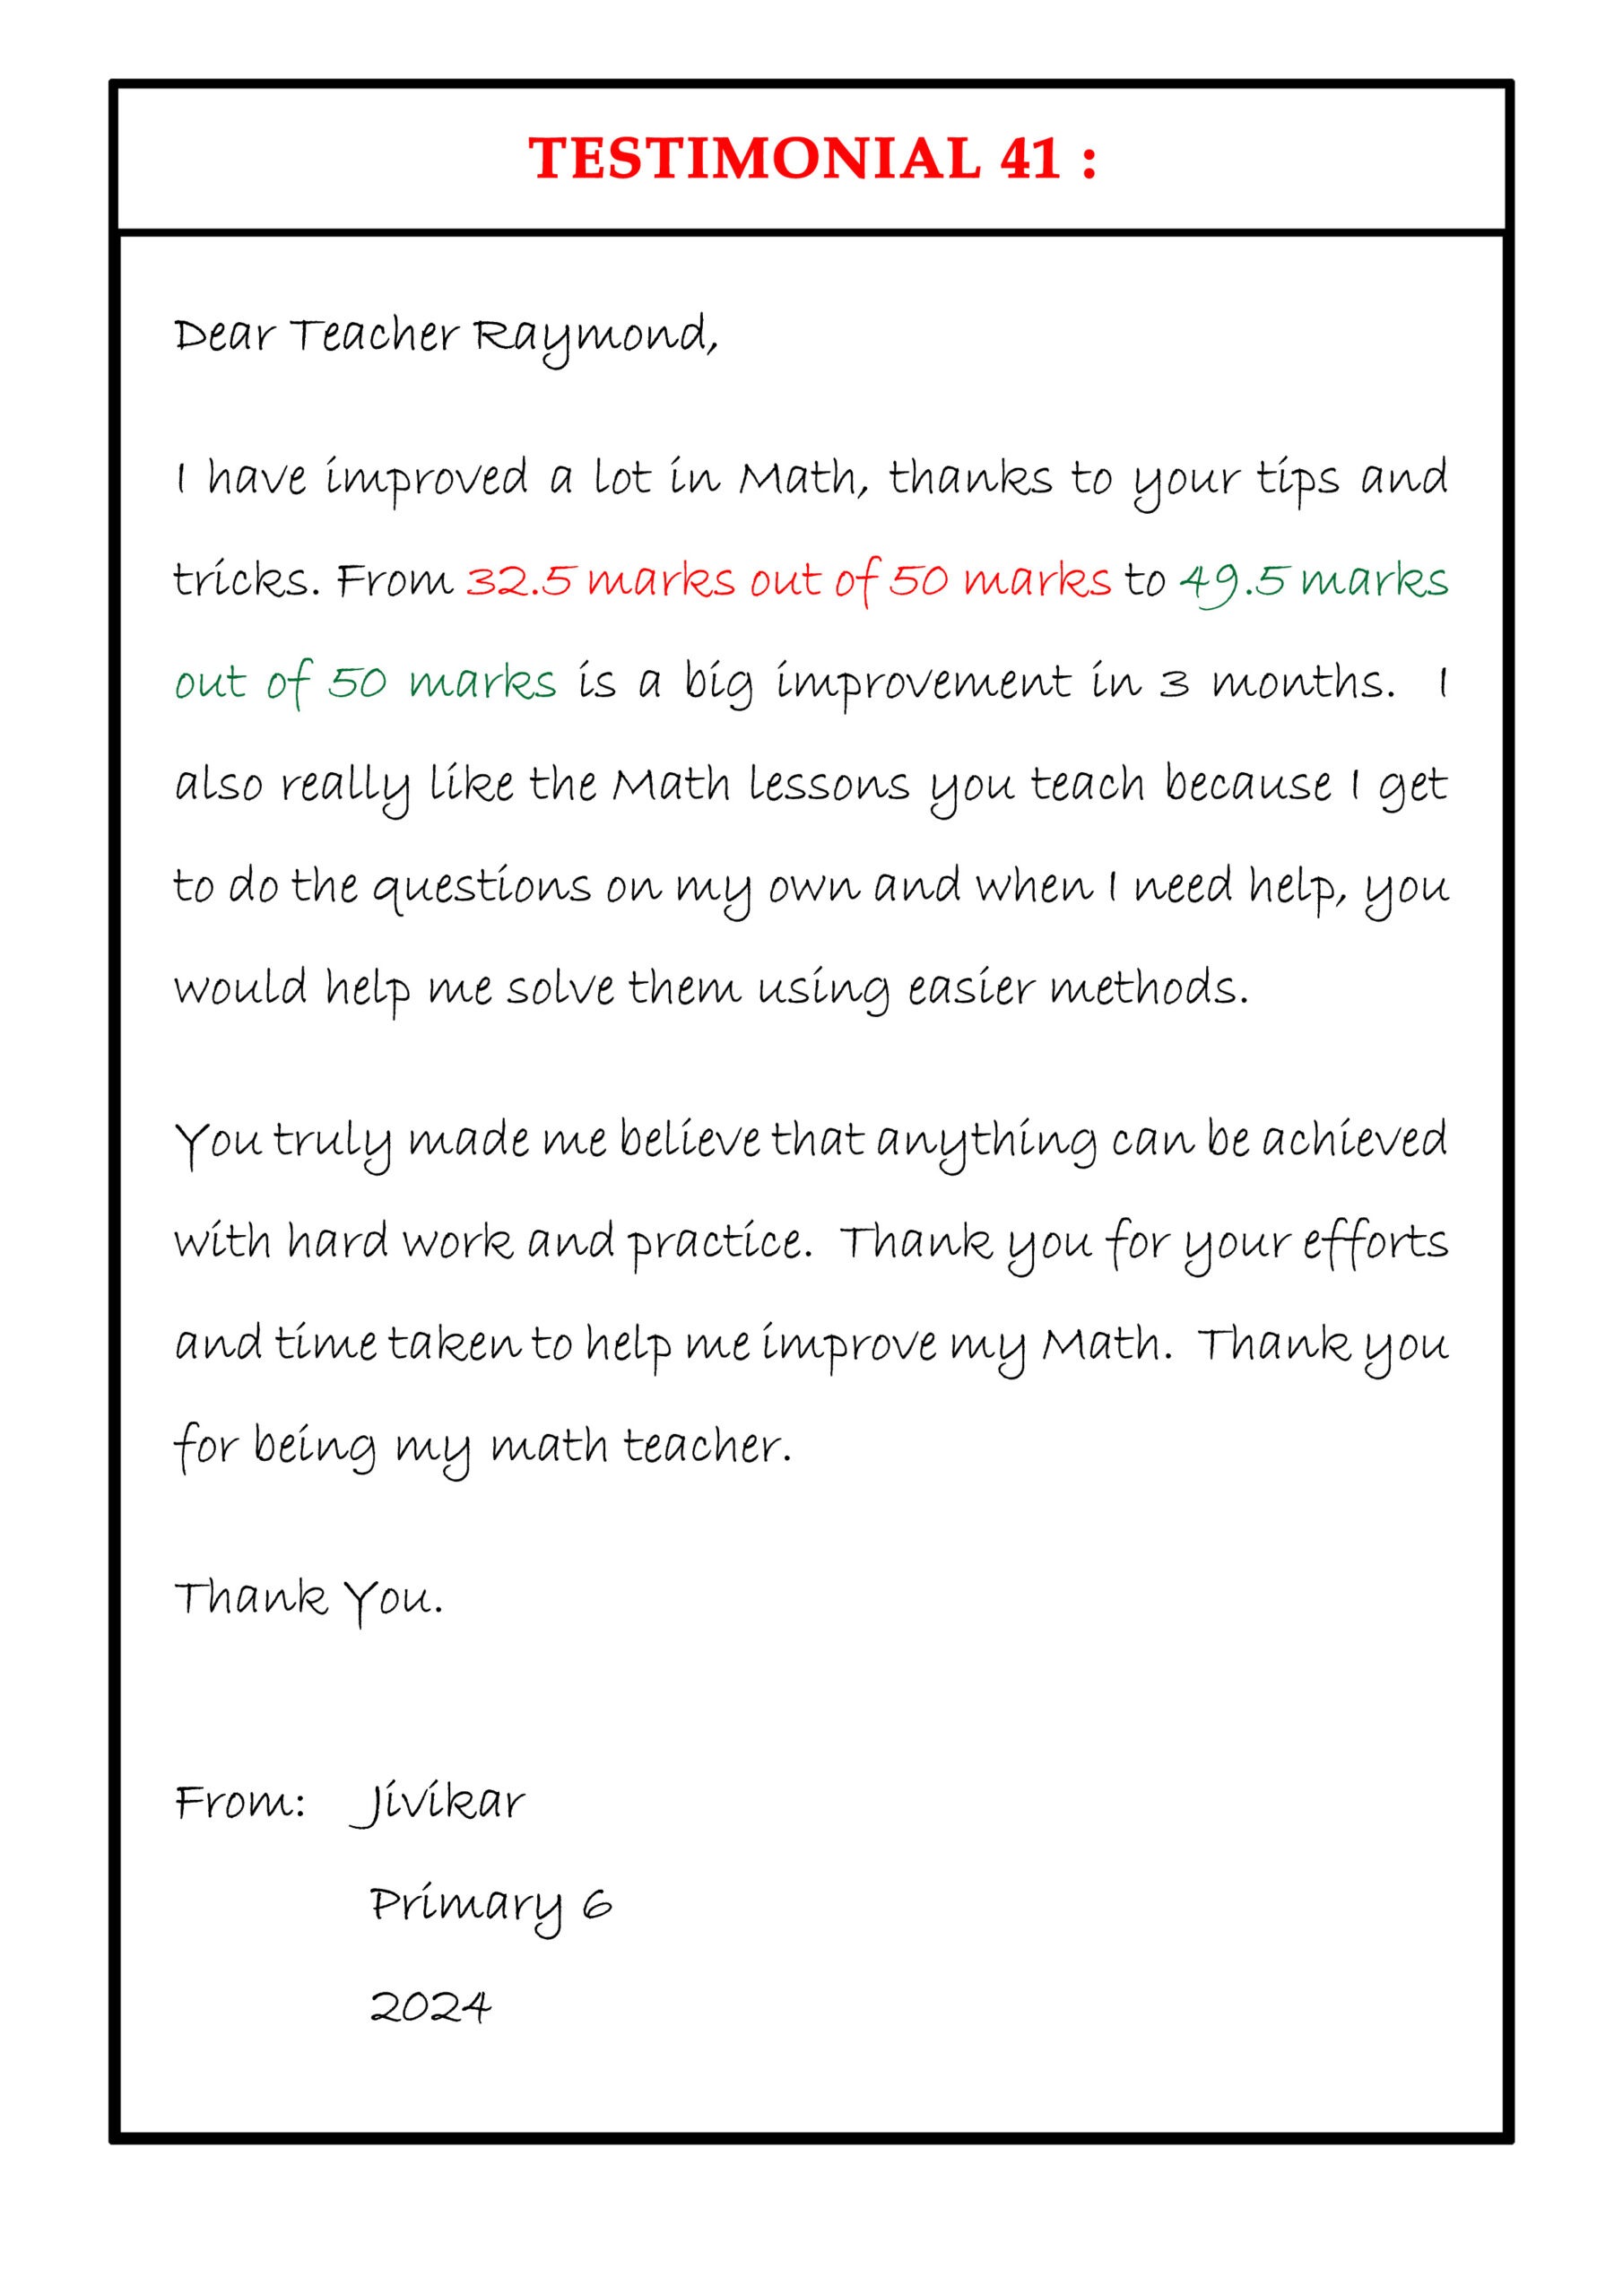 TESTIMONIAL 41 :
Dear Teacher Raymond,
I have improved a lot in Math, thanks to your tips and
tricks. From 32.5 marks out of 50 marks to 49.5 marks
out of 50 marks is a big improvement in 3 months. I
also really like the Math lessons you teach because I get
to do the questions on my own and when I need help, you
would help me solve them using easier methods.
You truly made me believe that anything can be achieved
with hard work and practice. Thank you for your efforts
and time taken to help me improve my Math. Thank you
for being my math teacher.
Thank You.
From: Jivikar
Primary 6
2024